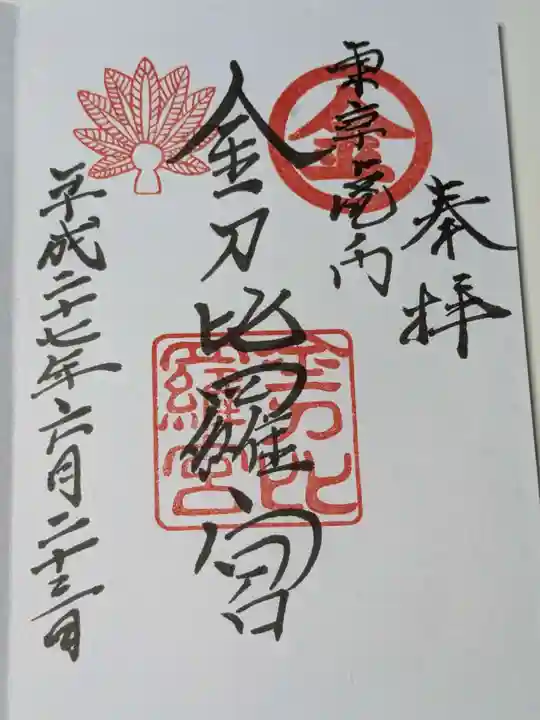 奉拝
東京虎ノ門
金
金刀比羅宮
金刀比
羅宮
平成二十七年六月二十三日